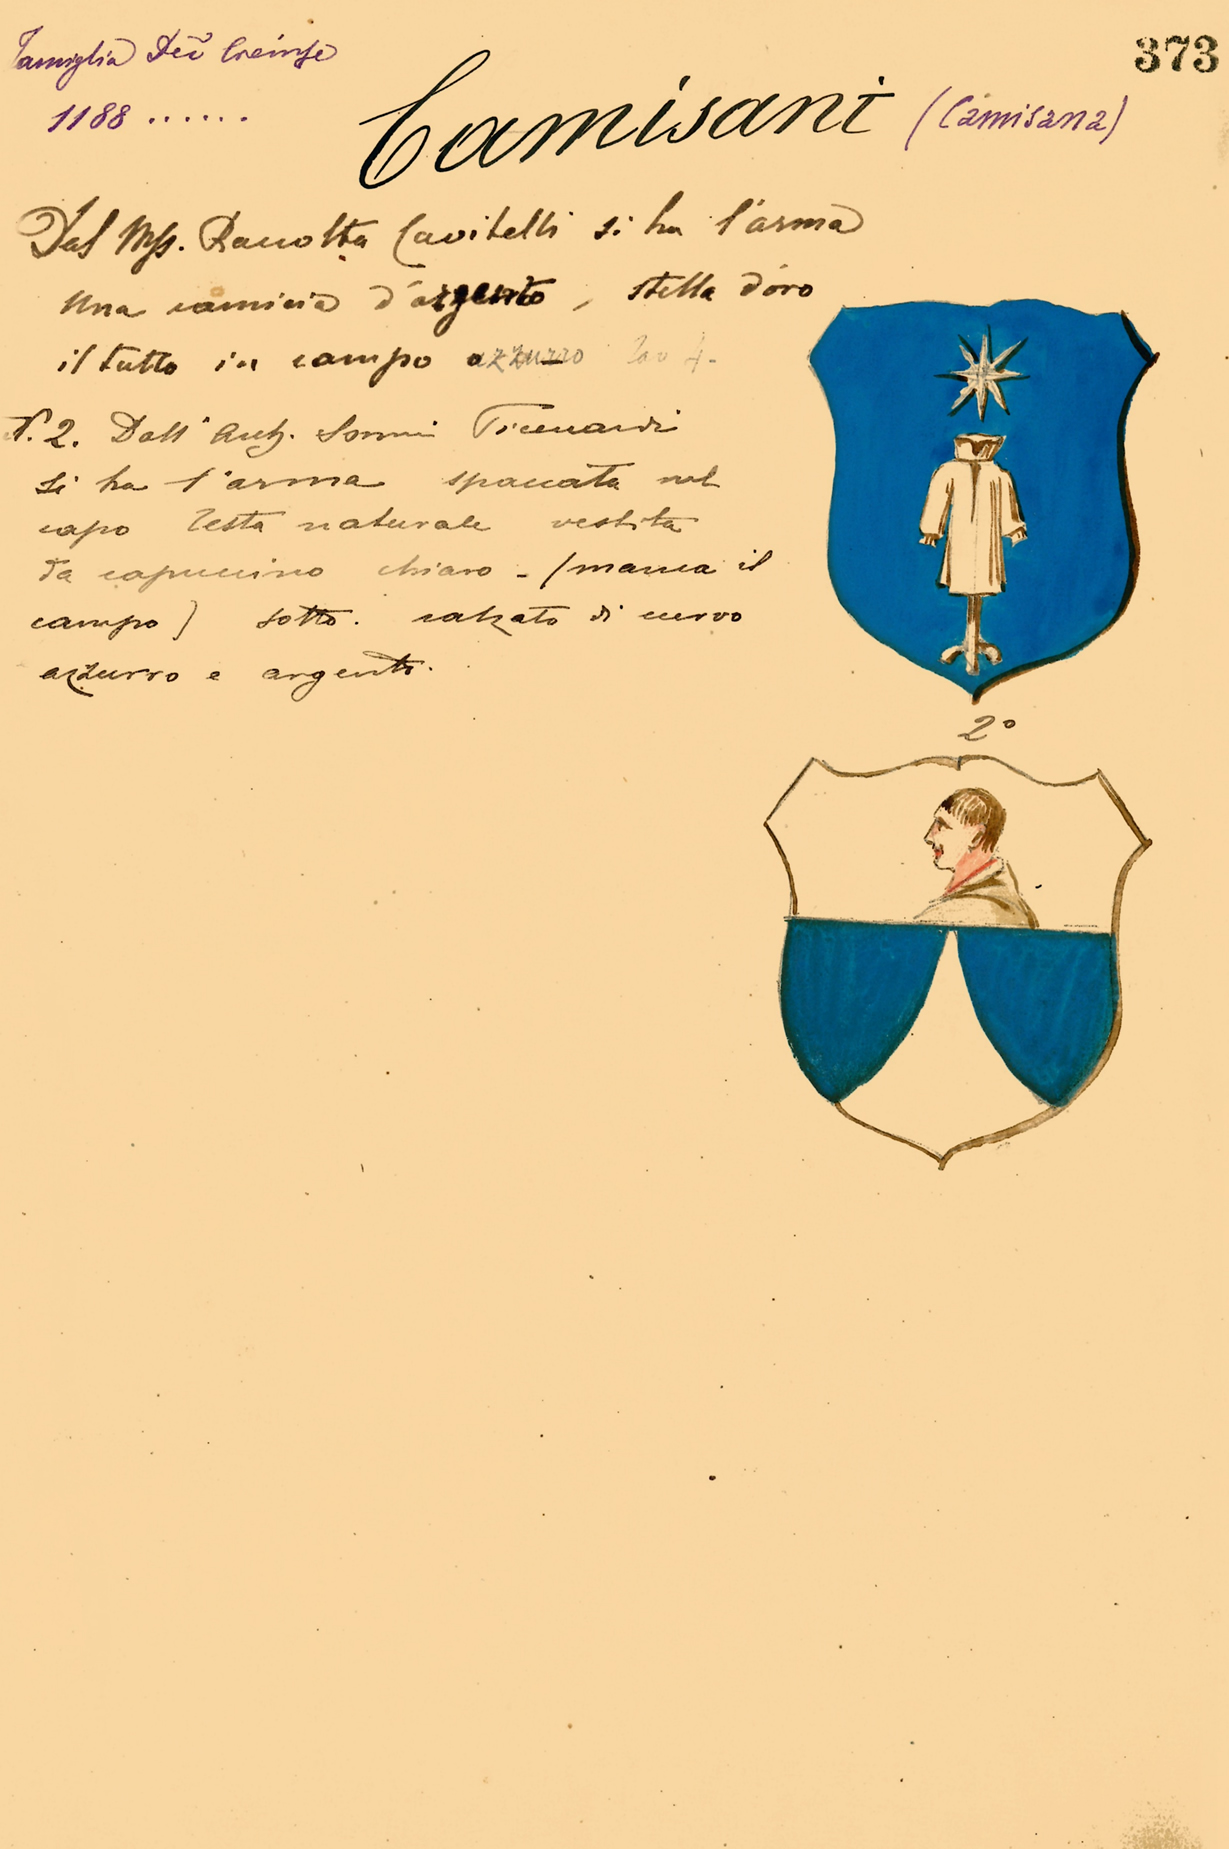 Famiglia
373
1188 ......
Camisani (Camisana)
Dal Mss. Raccolta Cavitelli si ha l'arma
una camicia d'argento, stella d'oro
il tutto in campo azzurro
N. 2. Dall' Sommi Picenardi
si ha l'arma spaccata nel
capo testa naturale vestita
da capuccino chiaro - (manca il
campo) sotto. calzato di
azzurro e argento.
2º